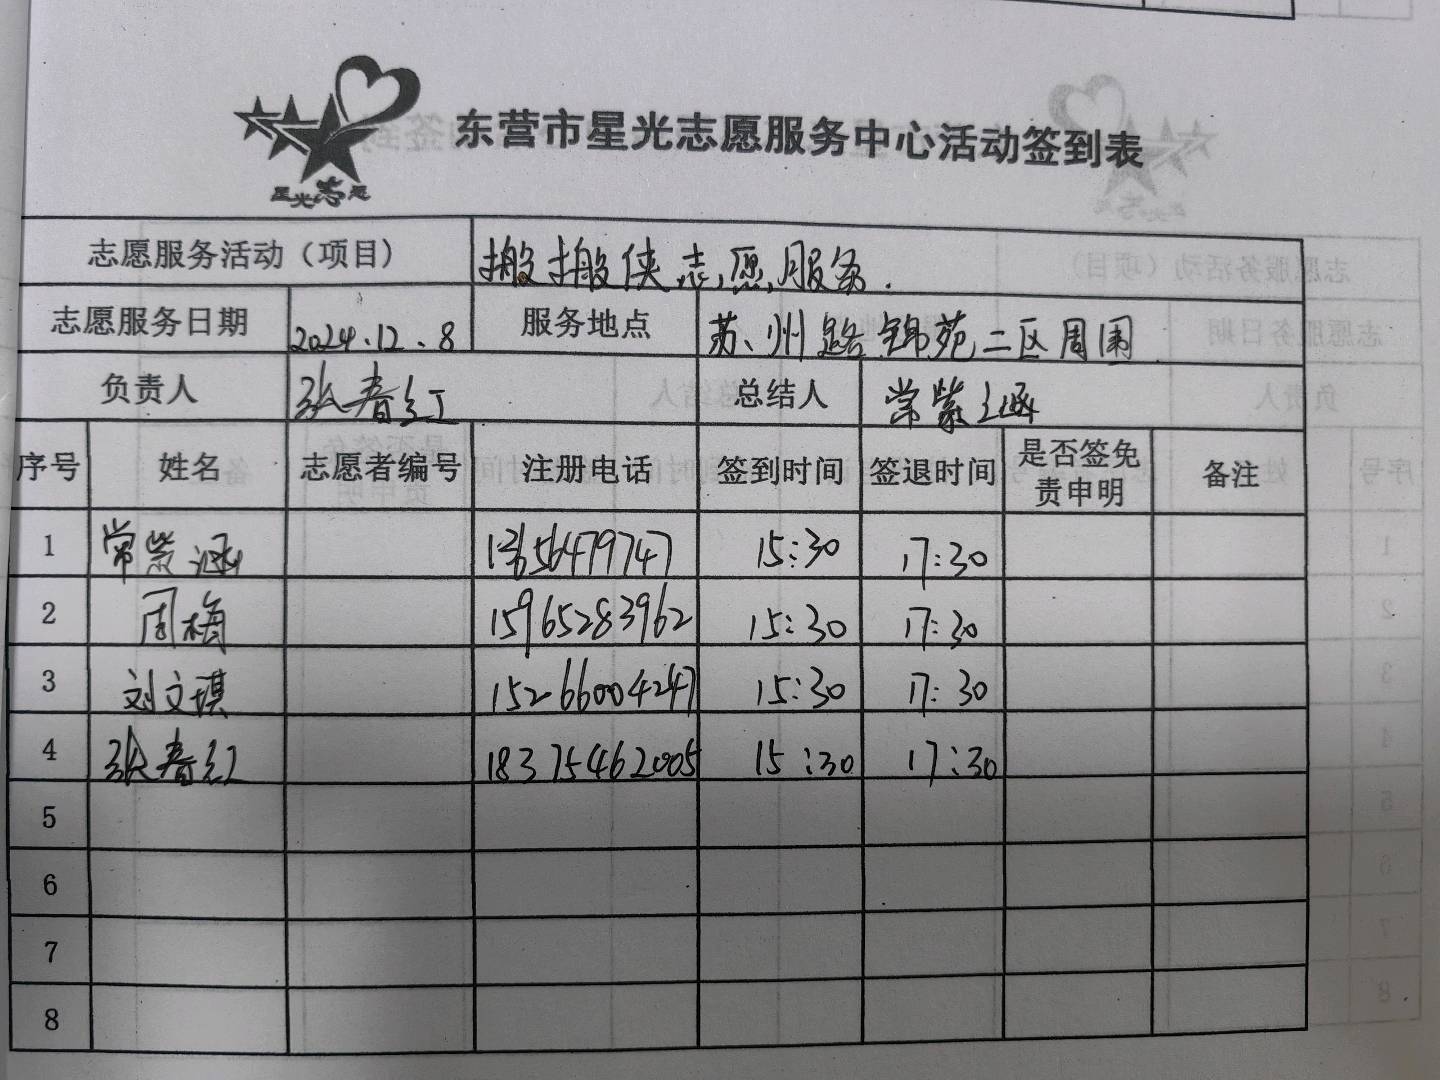 星光志愿
东营市星光志愿服务中心活动签到表
志愿服务活动（项目） 搬搬侠志愿服务.
志愿服务日期 2024.12.8 服务地点 苏州路锦苑二区周围
负责人 张春红 总结人 常紫涵
序号 姓名 志愿者编号 注册电话 签到时间 签退时间 是否签免责申明 备注
1 常紫涵 13656479747 15:30 17:30
2 周梅 15965283962 15:30 17:30
3 刘文琪 15266004247 15:30 17:30
4 张春红 18375462005 15:30 17:30
5
6
7
8